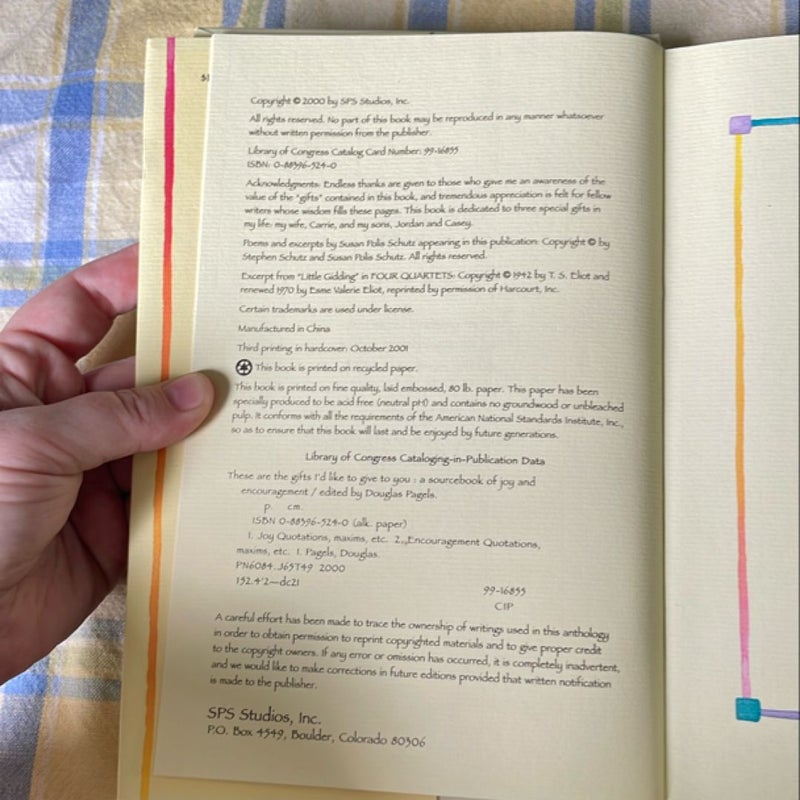 Copyright © 2000 by SPS Studios, Inc.
All rights reserved. No part of this book may be reproduced in any manner whatsoever
without written permission from the publisher.
Library of Congress Catalog Card Number: 99-16855
ISBN: 0-88396-524-0
Acknowledgments: Endless thanks are given to those who give me an awareness of the
value of the "gifts" contained in this book, and tremendous appreciation is felt for fellow
writers whose wisdom fills these pages. This book is dedicated to three special gifts in
my life: my wife, Carrie, and my sons, Jordan and Casey.
Poems and excerpts by Susan Polis Schutz appearing in this publication: Copyright © by
Stephen Schutz and Susan Polis Schutz. All rights reserved.
Excerpt from "Little Gidding" in FOUR QUARTETS: Copyright © 1942 by T. S. Eliot and
renewed 1970 by Esme Valerie Eliot, reprinted by permission of Harcourt, Inc.
Certain trademarks are used under license.
Manufactured in China
Third printing in hardcover: October 2001
This book is printed on recycled paper.
This book is printed on fine quality, laid embossed, 80 lb. paper. This paper has been
specially produced to be acid free (neutral pH) and contains no groundwood or unbleached
pulp. It conforms with all the requirements of the American National Standards Institute, Inc.,
so as to ensure that this book will last and be enjoyed by future generations.
Library of Congress Cataloging-in-Publication Data
These are the gifts I'd like to give to you : a sourcebook of joy and
encouragement / edited by Douglas Pagels.
p. cm.
ISBN 0-88396-524-0 (alk. paper)
1. Joy Quotations, maxims, etc. 2. Encouragement Quotations,
maxims, etc. I. Pagels, Douglas.
PN6084.J65T49 2000
152.4'2—dc21
99-16855
CIP
A careful effort has been made to trace the ownership of writings used in this anthology
in order to obtain permission to reprint copyrighted materials and to give proper credit
to the copyright owners. If any error or omission has occurred, it is completely inadvertent,
and we would like to make corrections in future editions provided that written notification
is made to the publisher.
SPS Studios, Inc.
P.O. Box 4549, Boulder, Colorado 80306